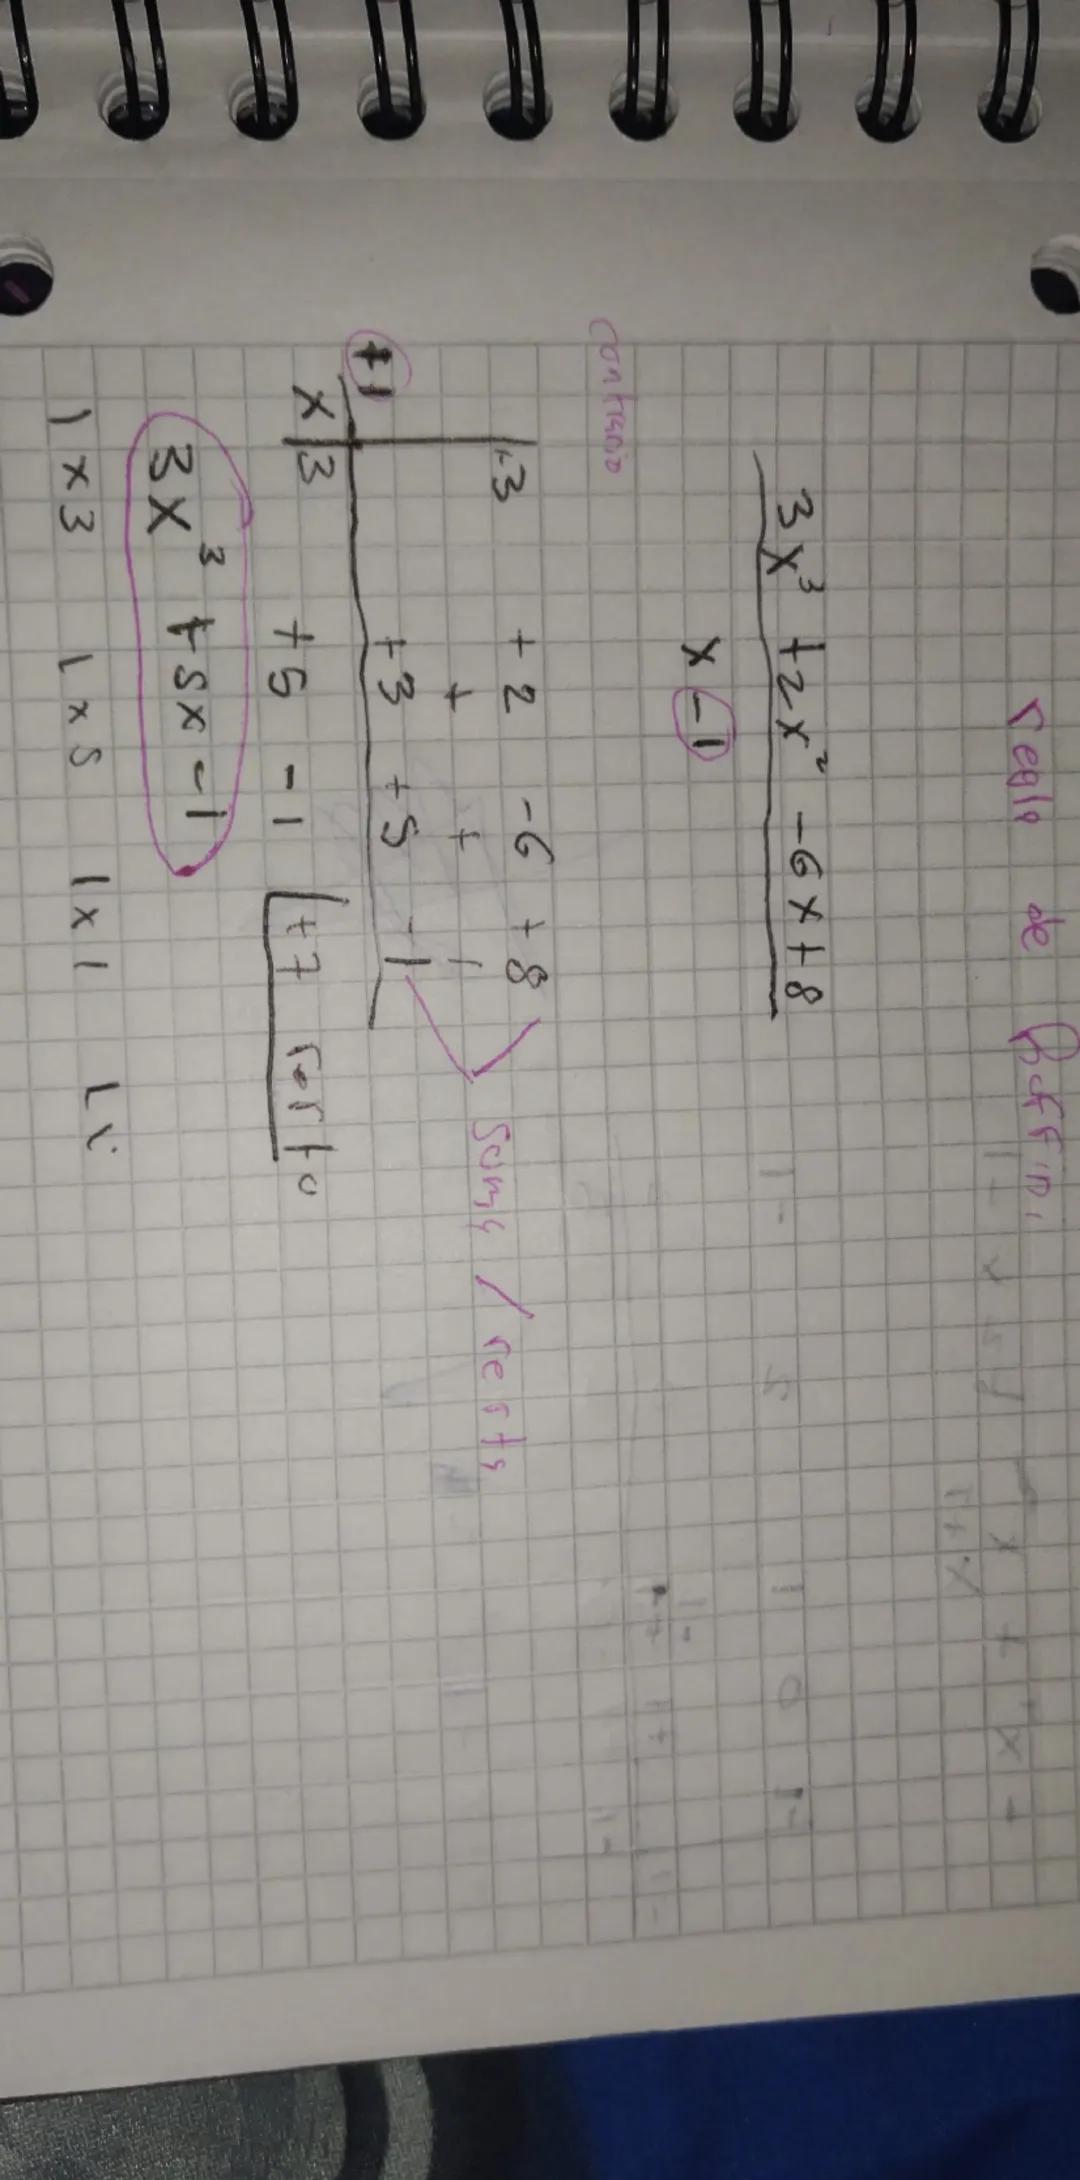 regla de Ruffini
3x³ +2x² -6x+8
x -1
contrario
+3 +2 -6 +8
+ + /
+1 +3 +5 -1 Suma / resta
x 3 +5 -1 +7 resto
3x³ +5x -1
1x3 1x5 1x1